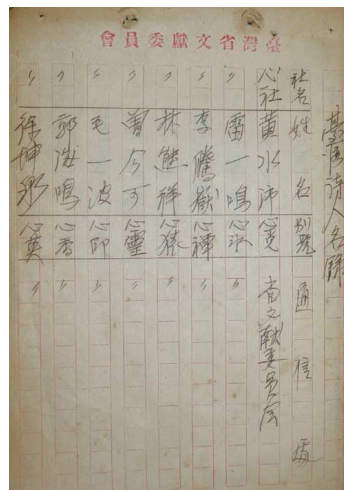 臺灣省文獻委員會
臺灣詩人名錄
社名 姓名 別號 通信處
心社 黃水沛 心完 省文獻委員會
〃 雷一鳴 心水 〃
〃 李騰嶽 心禪 〃
〃 林熊祥 心猿 〃
〃 曾今可 心靈 〃
〃 毛一波 心印 〃
〃 郭海鳴 心香 〃
〃 徐坤泉 心冀 〃